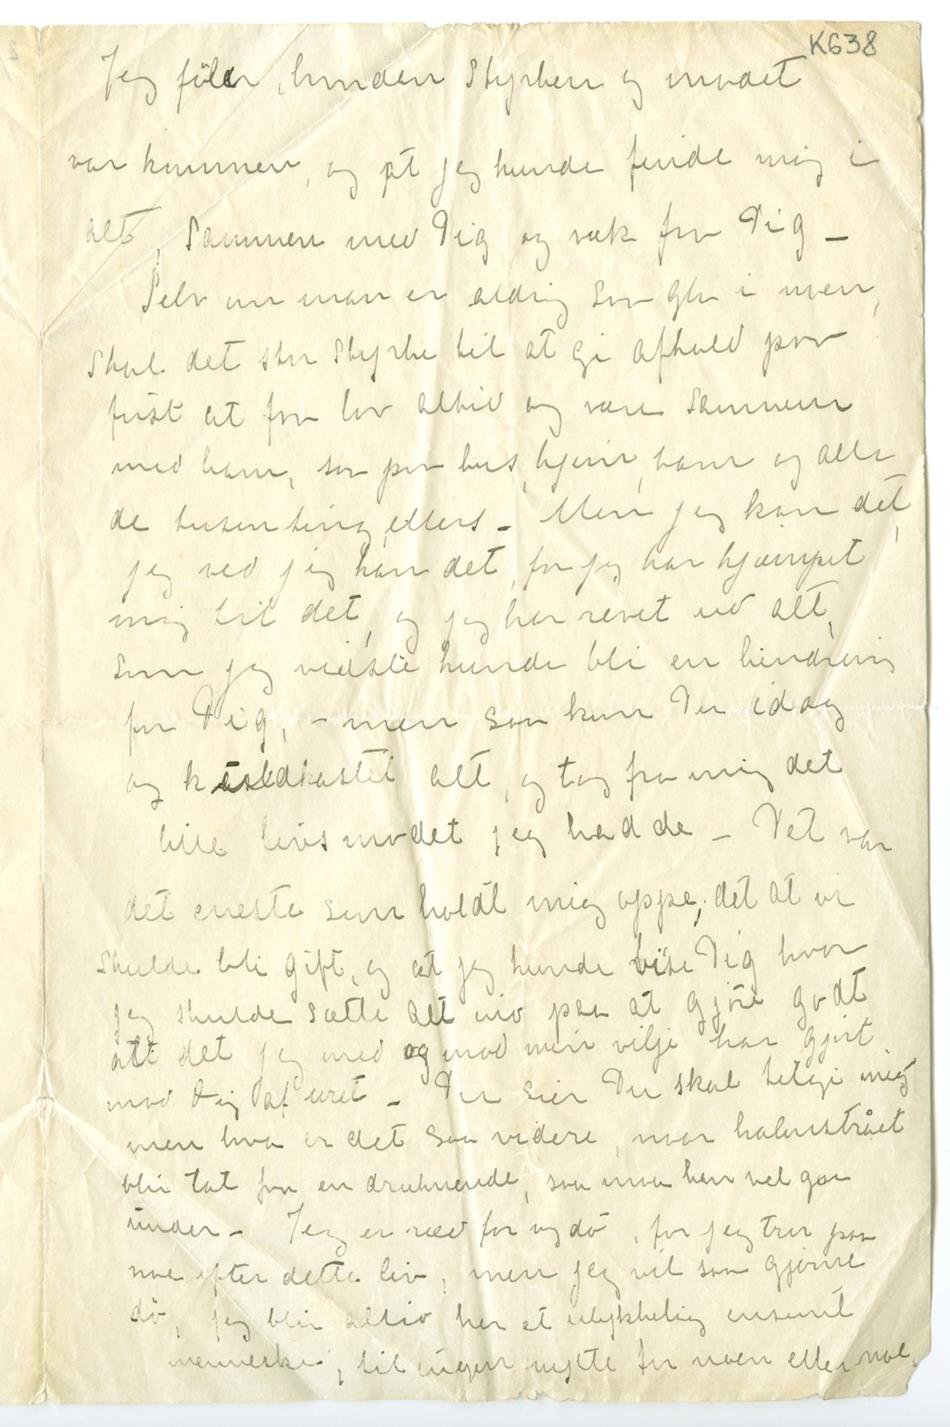 K638
Jeg føler, hvordan Styrken og modet
var kommen, og at jeg kunde finde mig i
alt, sammen med Dig og væk fra Dig –
Selv om man er aldrig saa gla i en,
skal det stor styrke til at gi afkald paa
først at faa lov altid og være sammen
med ham, saa paa hus, hjem, barn og alle
de tusen ting ellers – Men jeg kan det,
jeg ved jeg kan det, for jeg har kjæmpet
mig til det, og jeg har revet ud alt,
som jeg vidste kunde bli en hindring
for Dig, – men saa kom Du idag
og kuldkastet alt, og tog fra mig det
lille livsmodet jeg hadde – Det var
det eneste som holdt mig oppe, det at vi
skulde bli gift, og at jeg kunde vise Dig hvor
jeg skulde sætte alt ind paa at gjøre godt
alt det jeg med og mod min vilje har gjort
mod Dig af uret – Du sier Du skal tilgi mig
men hva er det saa videre, naar halmstrået
blir tat fra en druknende, saa maa han vel gaa
under – Jeg er ræd for og dø, for jeg tror paa
noe efter dette liv, men jeg vil saa gjerne
dø, jeg blir altid her et ulykkelig ensomt
menneske, til ingen nytte for noen eller noe,